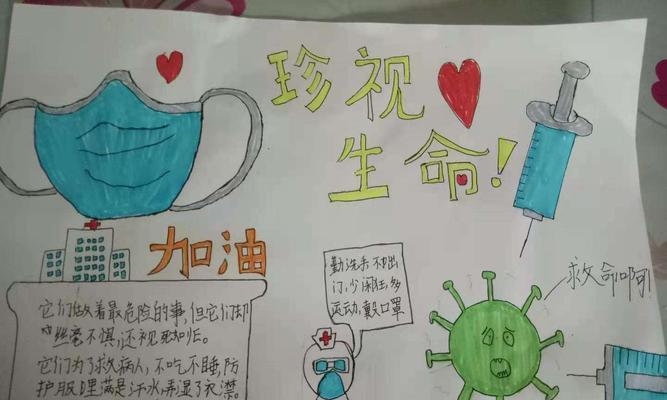 珍视
生命!
加油
勤洗手 不出
门,少闲逛,多
运动,戴口罩
救命啊!
它们做着最危险的事,但它们却
丝毫不惧,还视死如归。
它们为了救病人,不吃不睡,防
护服里满是汗水弄湿了衣襟。